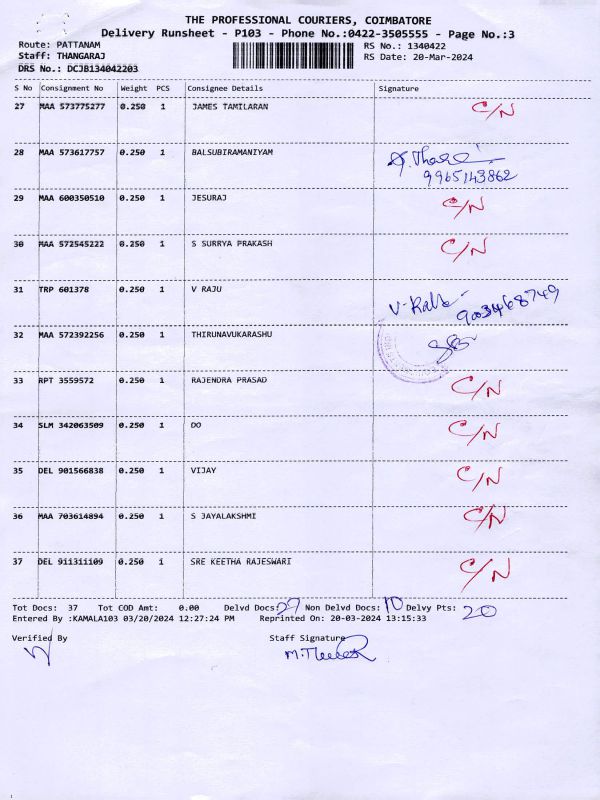 THE PROFESSIONAL COURIERS, COIMBATORE
Delivery Runsheet - P103 - Phone No.:0422-3505555 - Page No.:3
Route: PATTANAM RS No.: 1340422
Staff: THANGARAJ RS Date: 20-Mar-2024
DRS No.: DCJB134042203
S No Consignment No Weight PCS Consignee Details Signature
27 MAA 573775277 0.250 1 JAMES TAMILARAN C/N
28 MAA 573617757 0.250 1 BALSUBIRAMANIYAM
9965143862
29 MAA 600350510 0.250 1 JESURAJ C/N
30 MAA 572545222 0.250 1 S SURRYA PRAKASH C/N
31 TRP 601378 0.250 1 V RAJU 9003468749
32 MAA 572392256 0.250 1 THIRUNAVUKARASHU
33 RPT 3559572 0.250 1 RAJENDRA PRASAD C/N
34 SLM 342063509 0.250 1 DO C/N
35 DEL 901566838 0.250 1 VIJAY C/N
36 MAA 703614894 0.250 1 S JAYALAKSHMI C/N
37 DEL 911311109 0.250 1 SRE KEETHA RAJESWARI C/N
Tot Docs: 37 Tot COD Amt: 0.00 Delvd Docs: 27 Non Delvd Docs: 10 Delvy Pts: 20
Entered By :KAMALA103 03/20/2024 12:27:24 PM Reprinted On: 20-03-2024 13:15:33
Verified By Staff Signature